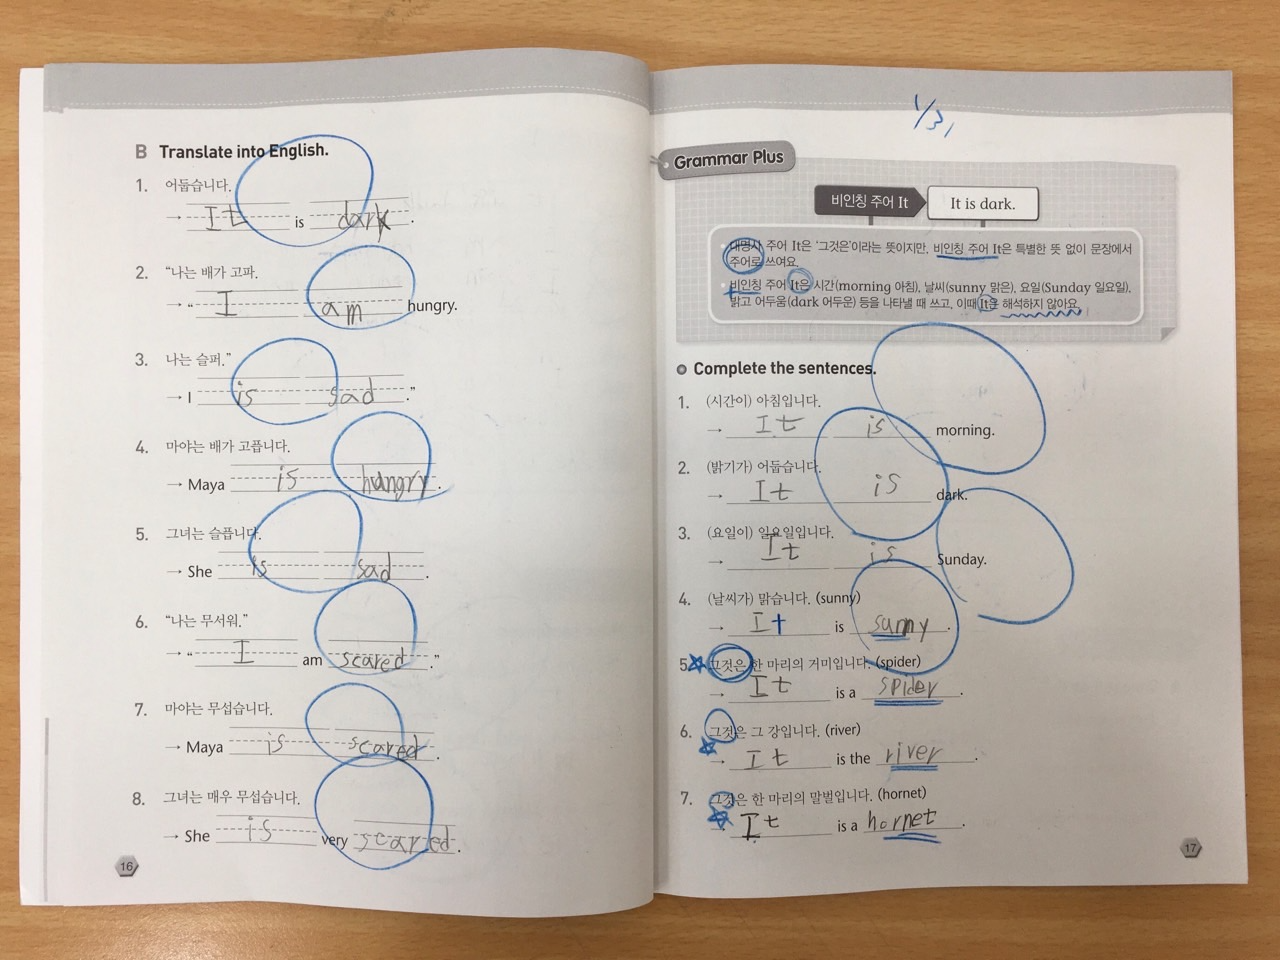 B Translate into English.
1. 어둡습니다.
→ It is dark.
2. "나는 배가 고파.
→ "I am hungry.
3. 나는 슬퍼."
→ I is sad."
4. 마야는 배가 고픕니다.
→ Maya is hungry.
5. 그녀는 슬픕니다.
→ She is sad.
6. "나는 무서워."
→ "I am scared."
7. 마야는 무섭습니다.
→ Maya is scared.
8. 그녀는 매우 무섭습니다.
→ She is very scared.
16
1/31
Grammar Plus
비인칭 주어 It It is dark.
• 대명사 주어 It은 '그것은'이라는 뜻이지만, 비인칭 주어 It은 특별한 뜻 없이 문장에서
주어로 쓰여요.
• 비인칭 주어 It은 시간(morning 아침), 날씨(sunny 맑은), 요일(Sunday 일요일),
밝고 어두움(dark 어두운) 등을 나타낼 때 쓰고, 이때 It은 해석하지 않아요.
Complete the sentences.
1. (시간이) 아침입니다.
→ It is morning.
2. (밝기가) 어둡습니다.
→ It is dark.
3. (요일이) 일요일입니다.
→ It is Sunday.
4. (날씨가) 맑습니다. (sunny)
→ It is sunny.
5. 그것은 한 마리의 거미입니다. (spider)
→ It is a spider.
6. 그것은 그 강입니다. (river)
→ It is the river.
7. 그것은 한 마리의 말벌입니다. (hornet)
→ It is a hornet.
17